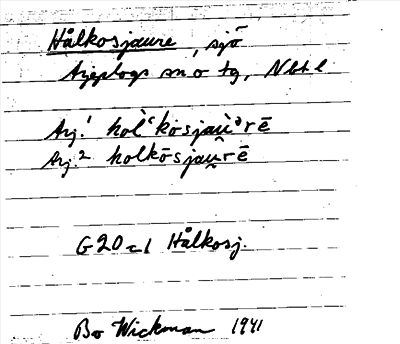 Hålkosjaure, sjö
Arjeplogs sn o tg, Nbt l
Arj.1 hol̀ʿkosjaù°rē
Arj.2 holkōsjau̯rē
G20=1 Hålkosj.
Bo Wickman 1941